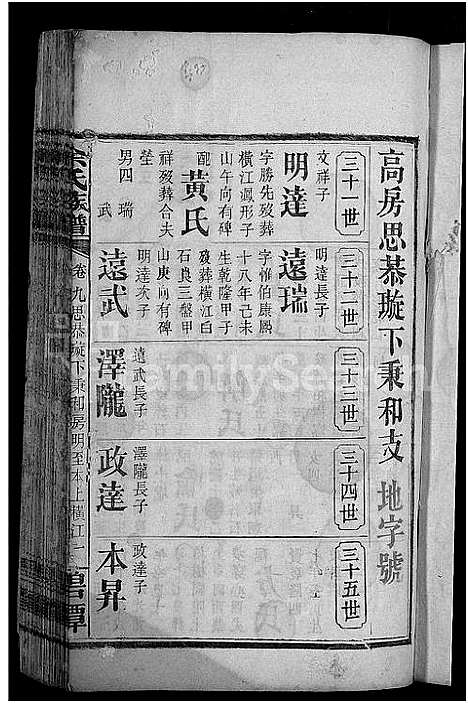 高房思恭璇下秉和支 地字號
三十一世
文祥子
明達
字勝先歿葬
橫江鳳形子
山午向有碑
配黃氏
祥歿葬合夫
塋
男四 瑞 武
三十二世
明達長子
遠瑞
字惟伯康熙
十八年己未
生乾隆甲子
歿葬橫江白
石良三盤甲
山庚向有碑
明達次子
遠武
三十三世
遠武長子
澤隴
三十四世
澤隴長子
政達
三十五世
政達子
本昇
余氏族譜
卷九思恭璇下秉和房明至本上橫江一
碧潭
FamilySearch